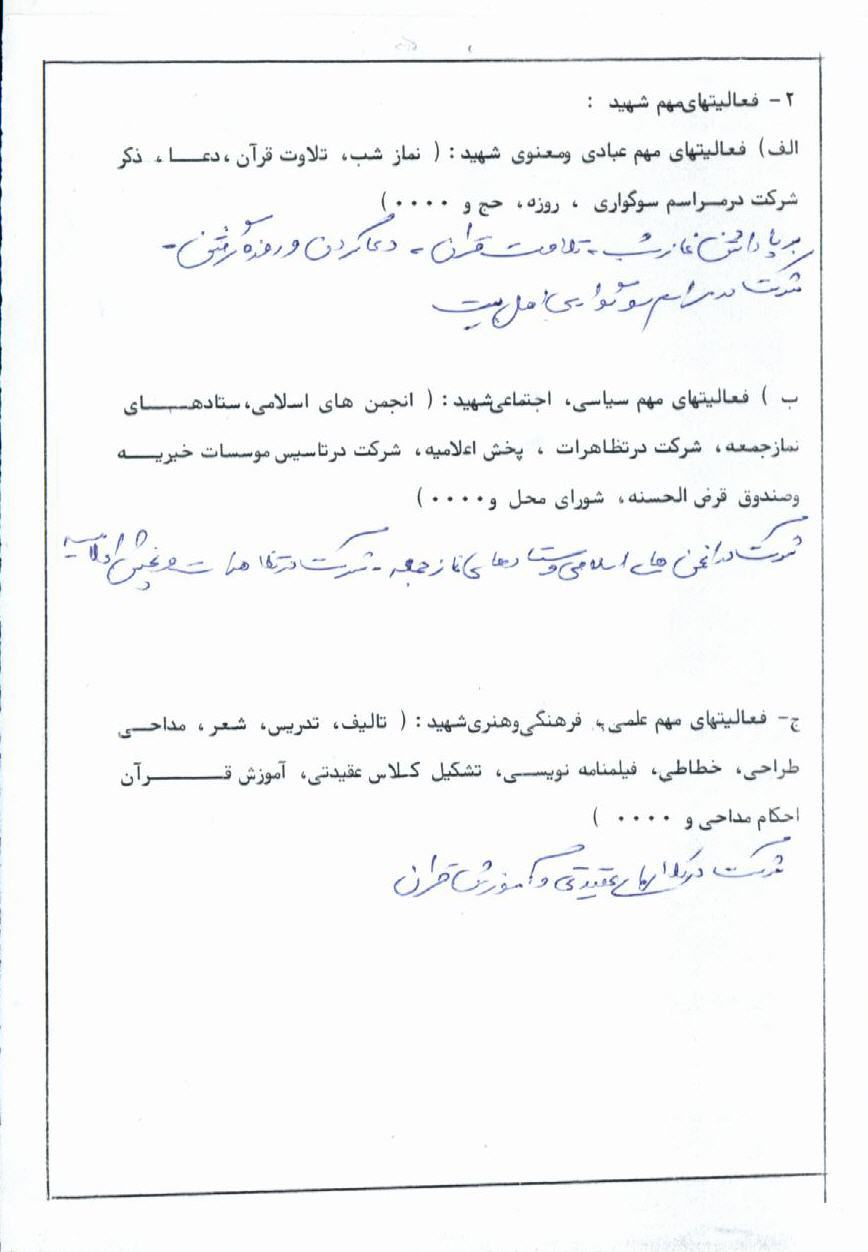 ۲- فعالیتهای مهم شهید :
الف) فعالیتهای مهم عبادی ومعنوی شهید : ( نماز شب، تلاوت قرآن ،دعـــا ، ذکر
شرکت درمراسم سوگواری ، روزه، حج و ۰۰۰۰ )
بر پا داشتن نماز شب - تلاوت قرآن - دعا کردن و روزه گرفتن -
شرکت در مراسم سوگواریهای اهل بیت
ب ) فعالیتهای مهم سیاسی، اجتماعی شهید : ( انجمن های اسلامی، ستادهـــای
نمازجمعه، شرکت درتظاهرات ، پخش اعلامیه، شرکت درتاسیس موسسات خیریـــه
وصندوق قرض الحسنه، شورای محل و۰۰۰۰ )
شرکت در انجمن های اسلامی و ستادهای نماز جمعه - شرکت در تظاهرات و پخش اعلامیه
ج- فعالیتهای مهم علمی، فرهنگی وهنری شهید : ( تالیف، تدریس، شعر، مداحـــی
طراحی، خطاطی، فیلمنامه نویســی، تشکیل کــلاس عقیدتی، آموزش قــــرآن
احکام مداحی و ۰۰۰۰ )
شرکت در کلاسهای عقیدتی و آموزش قرآن